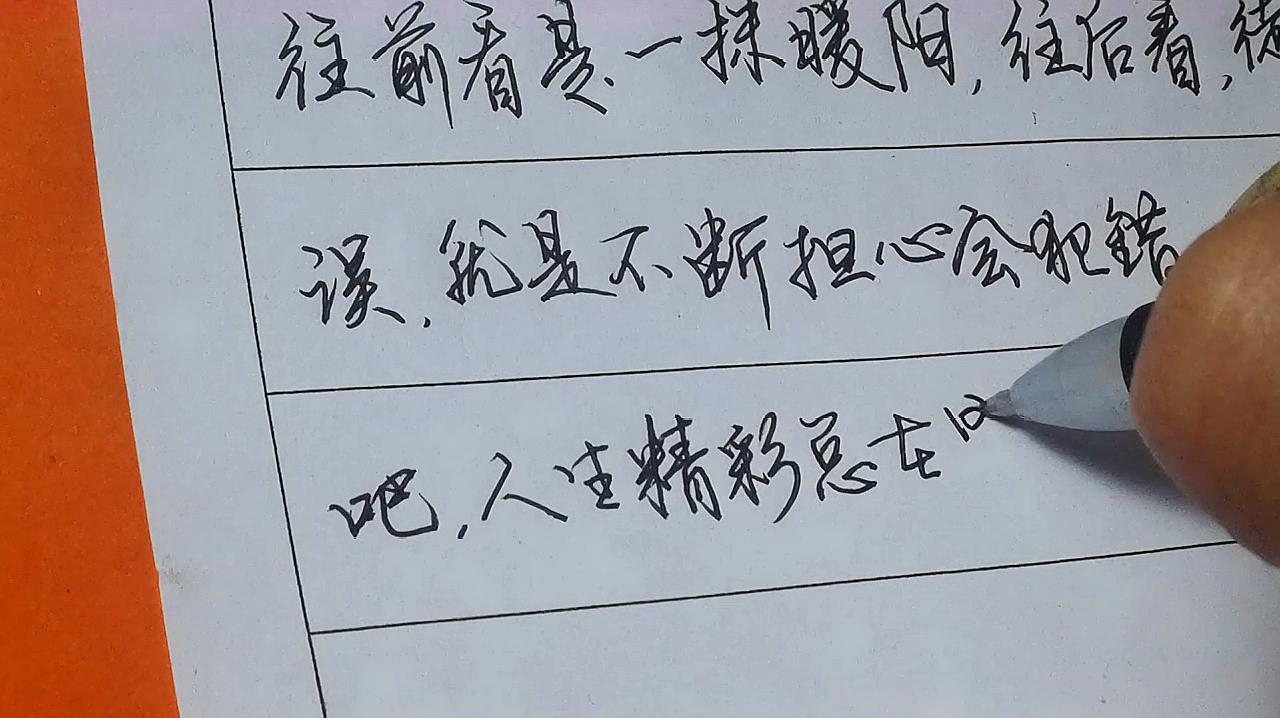 往前看是一抹暖阳,往后看,
误,就是不断担心会犯错
吧,人生精彩总在